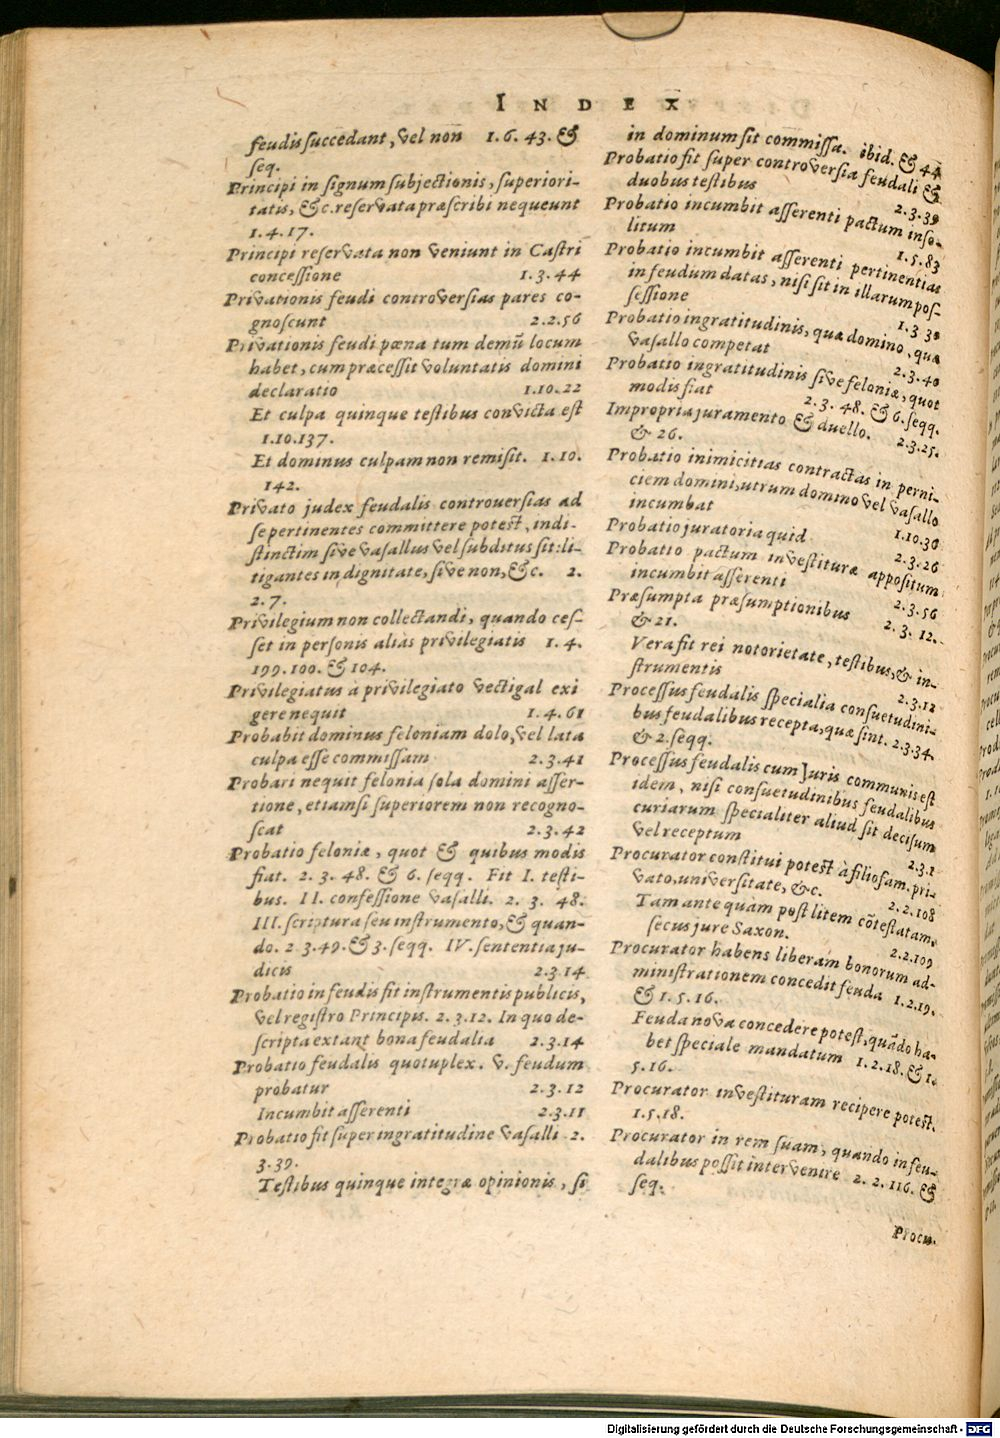 INDEX
feudis succedant, vel non 1.6.43. &
seq.
Principi in signum subjectionis, superiori-
tatis, &c. reservata præscribi nequeunt
1.4.17.
Principi reservata non veniunt in Castri
concessione 1.3.44
Privationis feudi controversias pares co-
gnoscunt 2.2.56
Privationis feudi pœna tum demũ locum
habet, cum præcessit voluntatis domini
declaratio 1.10.22
Et culpa quinque testibus convicta est
1.10.137.
Et dominus culpam non remisit. 1.10.
142.
Privato judex feudalis controuersias ad
se pertinentes committere potest, indi-
stinctim sive vasallus vel subditus sit: li-
tigantes in dignitate, sive non, &c. 2.
2.7.
Privilegium non collectandi, quando ces-
set in personis alias privilegiatis 1.4.
199.100. & 104.
Privilegiatus à privilegiato vectigal exi
gere nequit 1.4.61
Probabit dominus feloniam dolo, vel lata
culpa esse commissam 2.3.41
Probari nequit felonia sola domini asser-
tione, etiamsi superiorem non recogno-
scat 2.3.42
Probatio feloniæ, quot & quibus modis
fiat. 2.3.48. & 6. seqq. Fit I. testi-
bus. II. confessione vasalli. 2.3.48.
III. scriptura seu instrumento, & quan-
do. 2 3.49. & 3. seqq. IV. sententia ju-
dicis 2.3.14
Probatio in feudis fit instrumentis publicis,
vel registro Principis. 2.3.12. In quo de-
scripta extant bona feudalia 2.3.14
Probatio feudalis quotuplex. v. feudum
probatur 2.3.12
Incumbit asserenti 2.3.11
Probatio fit super ingratitudine vasalli 2.
3.39.
Testibus quinque integræ opinionis, si
in dominum sit commissa. ibid. & 44
Probatio fit super controversia feudali &
duobus testibus 2.3.39
Probatio incumbit asserenti pactum inso-
litum 1.5.83
Probatio incumbit asserenti pertinentias
in feudum datas, nisi sit in illarum pos-
sessione 1.3.30
Probatio ingratitudinis, quæ domino, quæ
vasallo competat 2.3.40
Probatio ingratitudinis sive feloniæ, quot
modis fiat 2.3.48. & 6. seqq.
Impropria juramento & duello. 2.3.25.
& 26.
Probatio inimicitias contractas in perni-
ciem domini, utrum domino vel vasallo
incumbat 1.10.30
Probatio juratoria quid 2.3.26
Probatio pactum investituræ appositum
incumbit asserenti 2.3.56
Præsumpta præsumptionibus 2.3.12.
& 21.
Vera fit rei notorietate, testibus, & in-
strumentis 2.3.12
Processus feudalis specialia consuetudini-
bus feudalibus recepta, quæ sint. 2.3.34.
& 2. seqq.
Processus feudalis cum Juris communis est
idem, nisi consuetudinibus feudalibus
curiarum specialiter aliud sit decisum
vel receptum 2.3.1
Procurator constitui potest à filiofam. pri-
vato, universitate, &c. 2.2.108
Tam ante quàm post litem cõtestatam,
secus jure Saxon. 2.2.109
Procurator habens liberam bonorum ad-
ministrationem concedit feuda 1.2.19.
& 1.5.16.
Feuda nova concedere potest, quãdo ha-
bet speciale mandatum 1.2.18. & 1.
5.16.
Procurator investituram recipere potest.
1.5.18.
Procurator in rem suam, quando in feu-
dalibus possit intervenire 2.2.116. &
seq.
Procu-
Digitalisierung gefördert durch die Deutsche Forschungsgemeinschaft - DFG